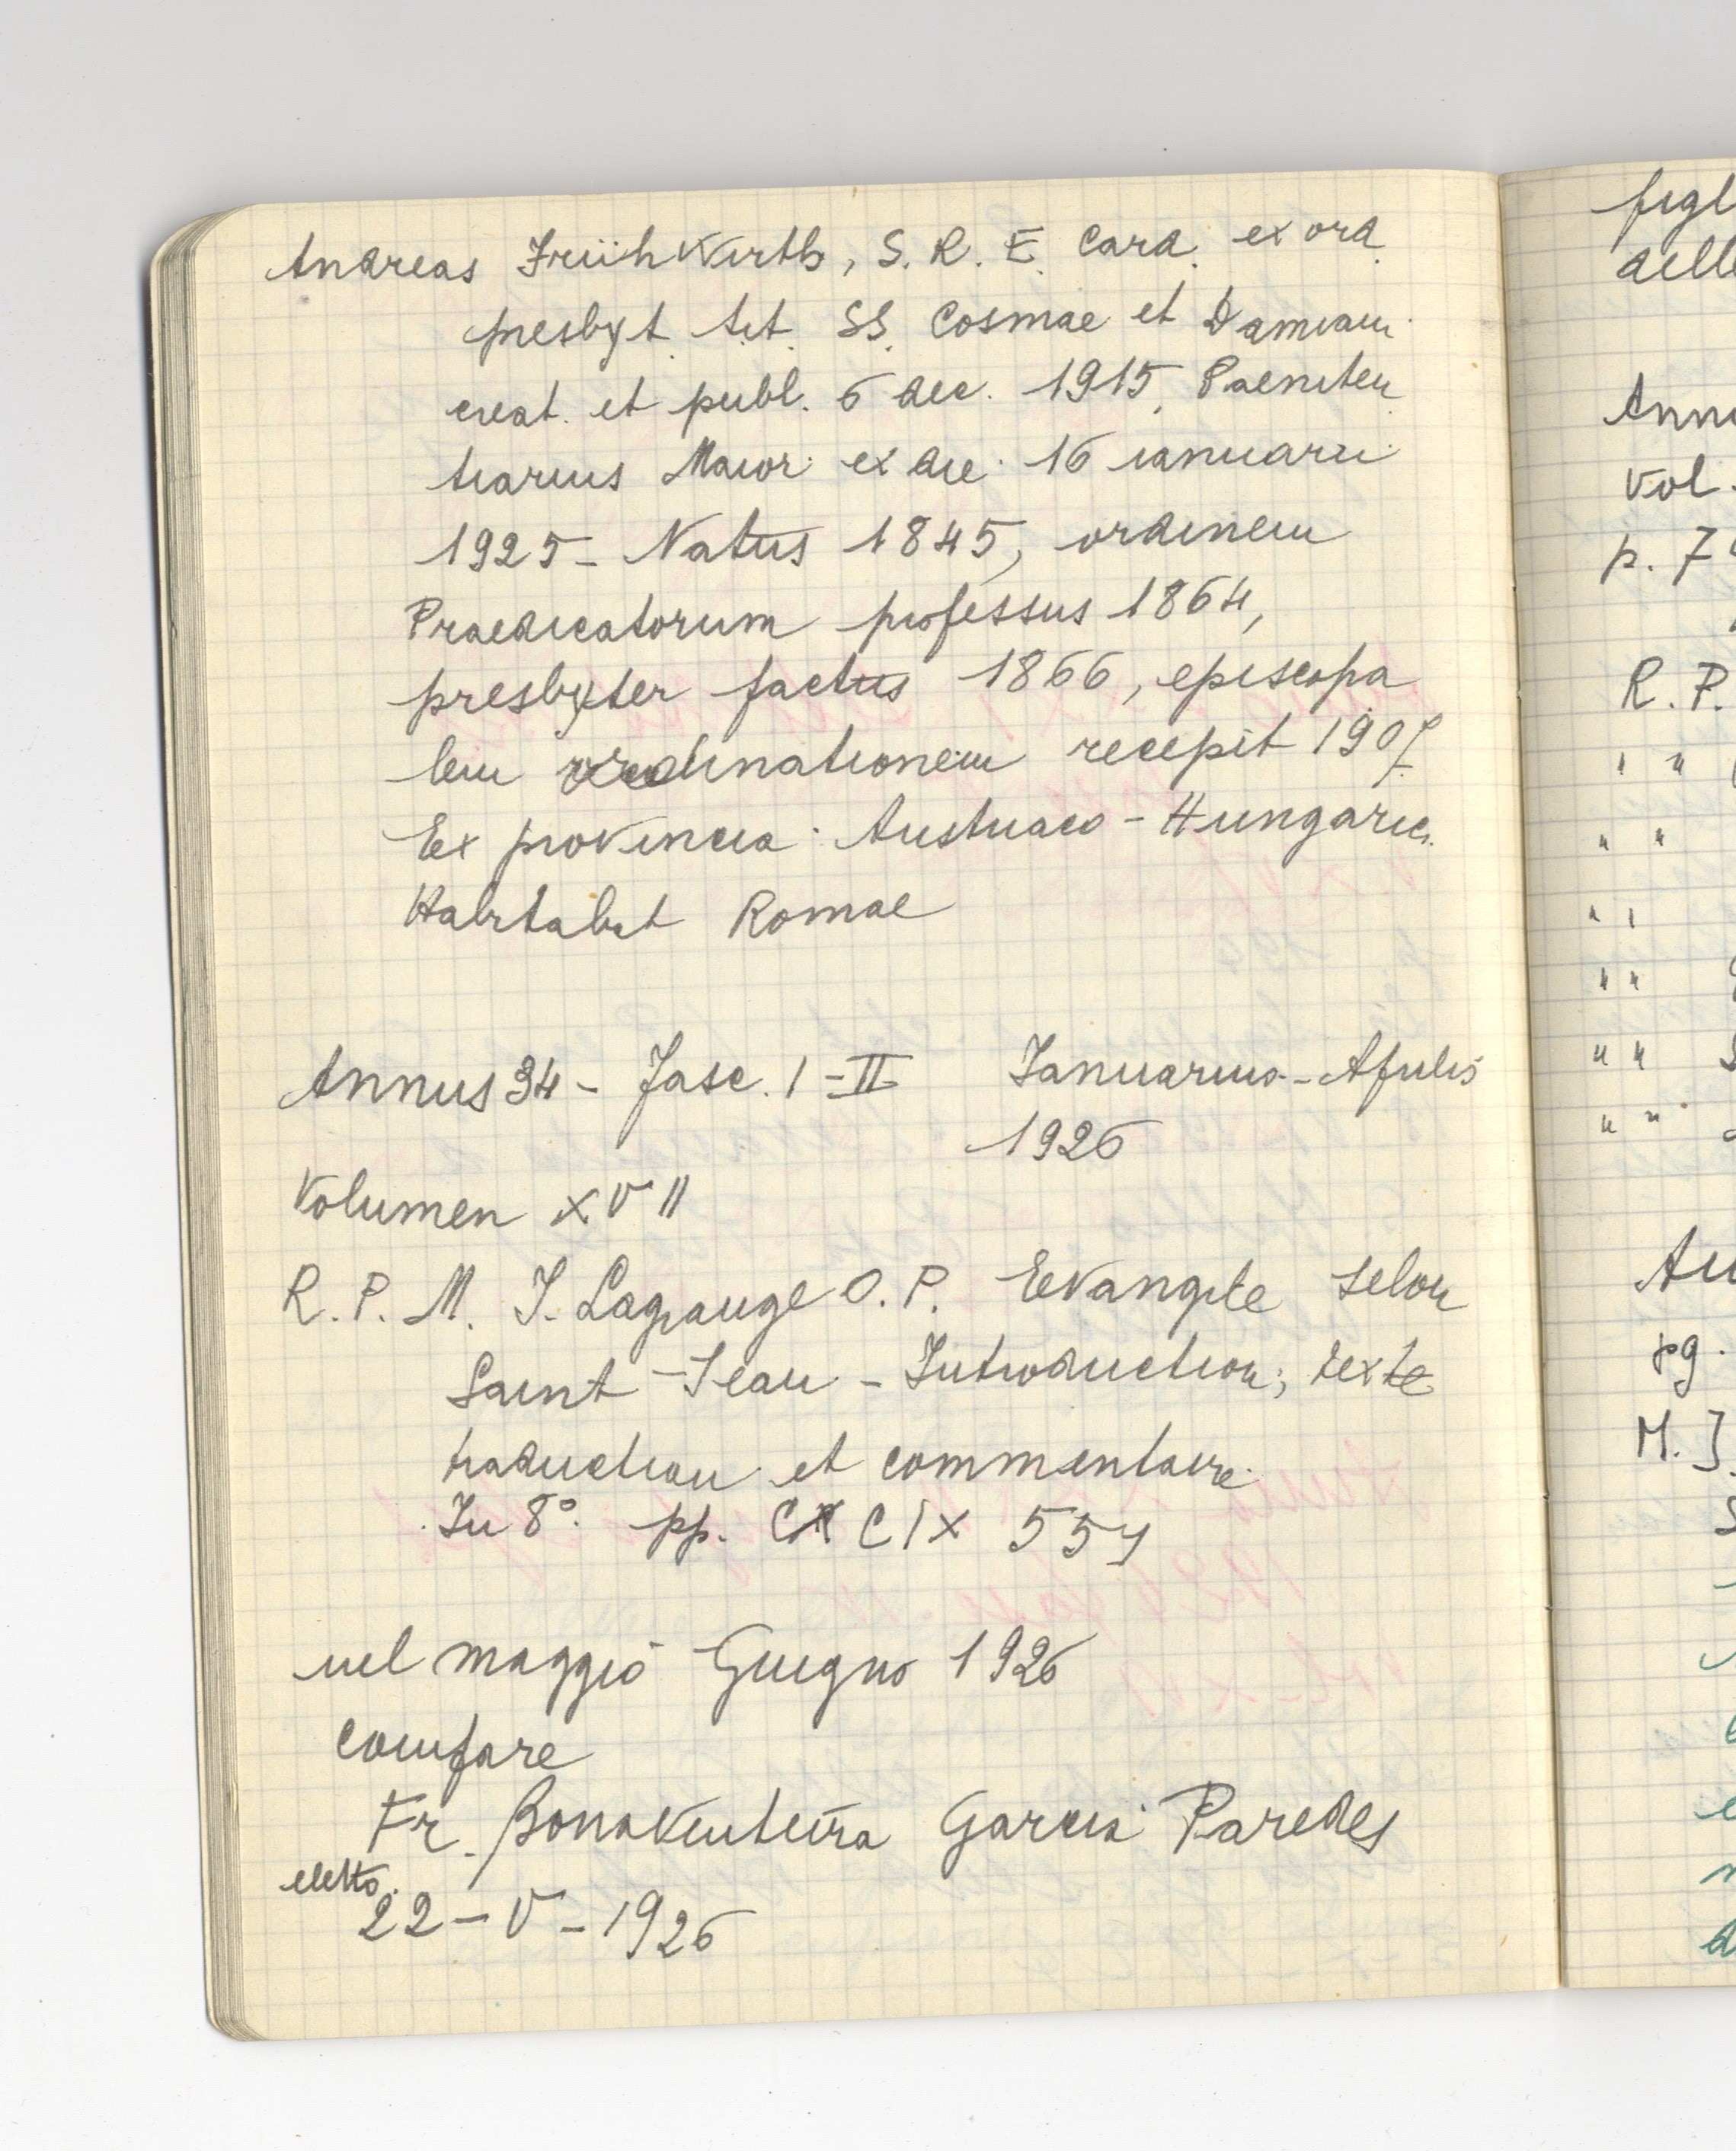 Andreas Früh Wirth, S. R. E. Card. ex ord.
presbyt. tit. SS. Cosmae et Damiani
creat. et publ. 6 dec. 1915, Paeniten
tiarius Maior ex die 16 ianuarii
1925 - Natus 1845, ordinem
Praedicatorum professus 1864,
presbyter factus 1866, episcopa
lem ordinationem recepit 1907.
Ex provincia Austriaco - Hungarica
Habitabit Romae
Annus 34 - Fasc. I - II Ianuarius - Aprilis
1926
Volumen XVII
R. P. M. J. Lagrange O. P. Evangile selon
Saint - Jean - Introduction, texte
traduction et commentaire
In 8° pp. CXCIX 559
nel maggio Giugno 1926
compare
Fr. Bonaventura Garcia Paredes
eletto
22 - V - 1926
figl
delle
Ann
Vol.
p. 7
R. P.
" "
" "
" "
" "
" "
" "
pg.
M. J.